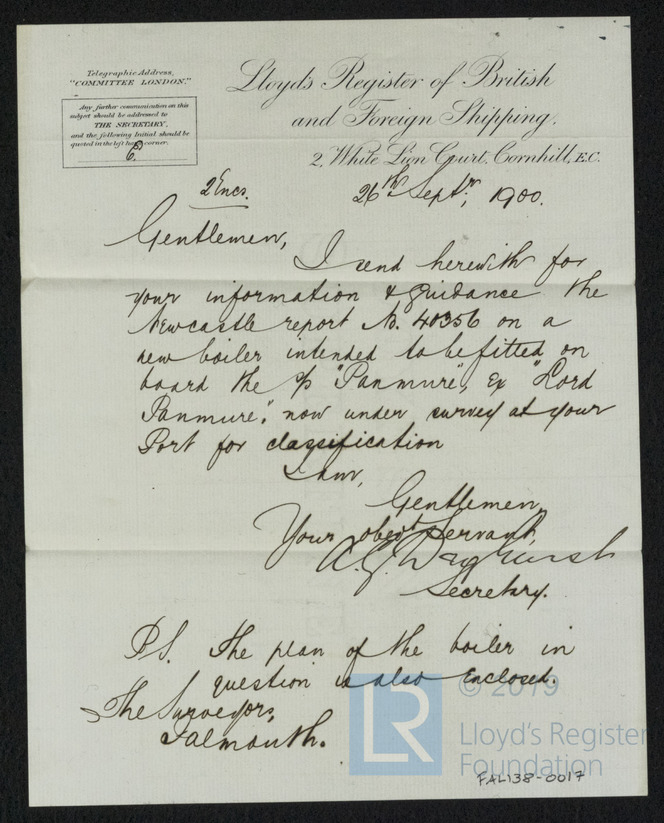 Telegraphic Address,
"COMMITTEE LONDON."
Any further communication on this
subject should be addressed to
THE SECRETARY,
and the following Initial should be
quoted in the left hand corner.
Lloyd's Register of British
and Foreign Shipping.
2, White Lion Court, Cornhill, E.C.
2 Encs.
26th Septr, 1900.
Gentlemen,
I send herewith for
your information & guidance the
Newcastle report No. 40356 on a
new boiler intended to be fitted on
board the S/S "Panmure", ex "Lord
Panmure", now under survey at your
Port for classification
I am,
Gentlemen,
Your obedt Servant,
Secretary.
P.S. The plan of the boiler in
question is also enclosed.
The Surveyors,
Falmouth.
LR
© 2019
Lloyd's Register
Foundation
FAL138-0017